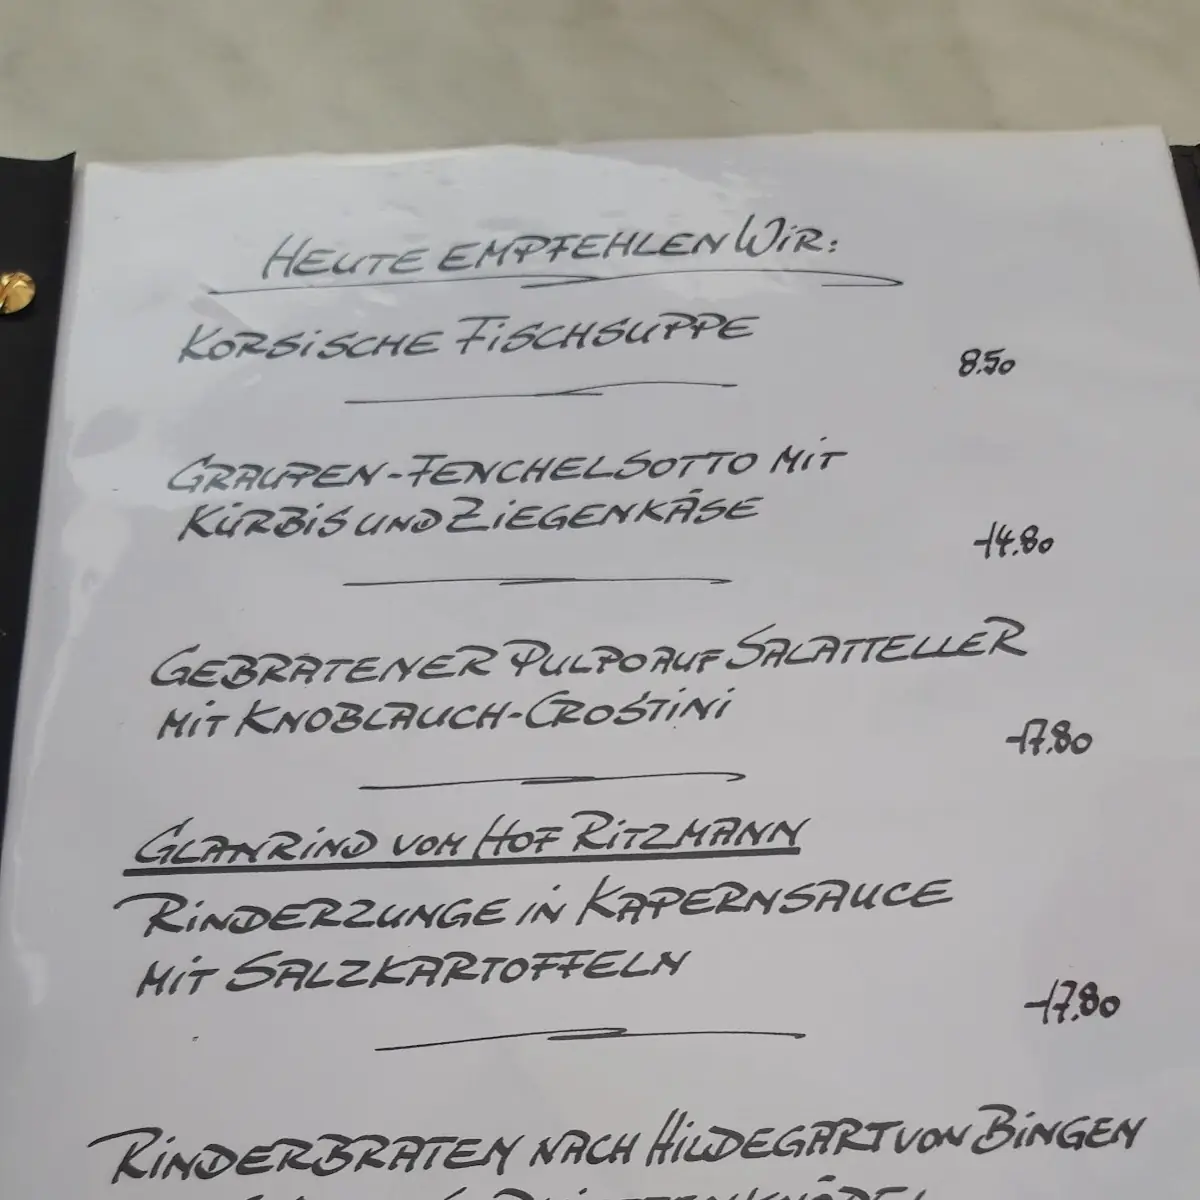 HEUTE EMPFEHLEN WIR:
KORSISCHE FISCHSUPPE
8.50
GRAUPEN-FENCHELSOTTO MIT
KÜRBIS UND ZIEGENKÄSE
14.80
GEBRATENER PULPO AUF SALATTELLER
MIT KNOBLAUCH-CROSTINI
17.80
GLANRIND VOM HOF RITZMANN
RINDERZUNGE IN KAPERNSAUCE
MIT SALZKARTOFFELN
17.80
RINDERBRATEN NACH HILDEGART VON BINGEN